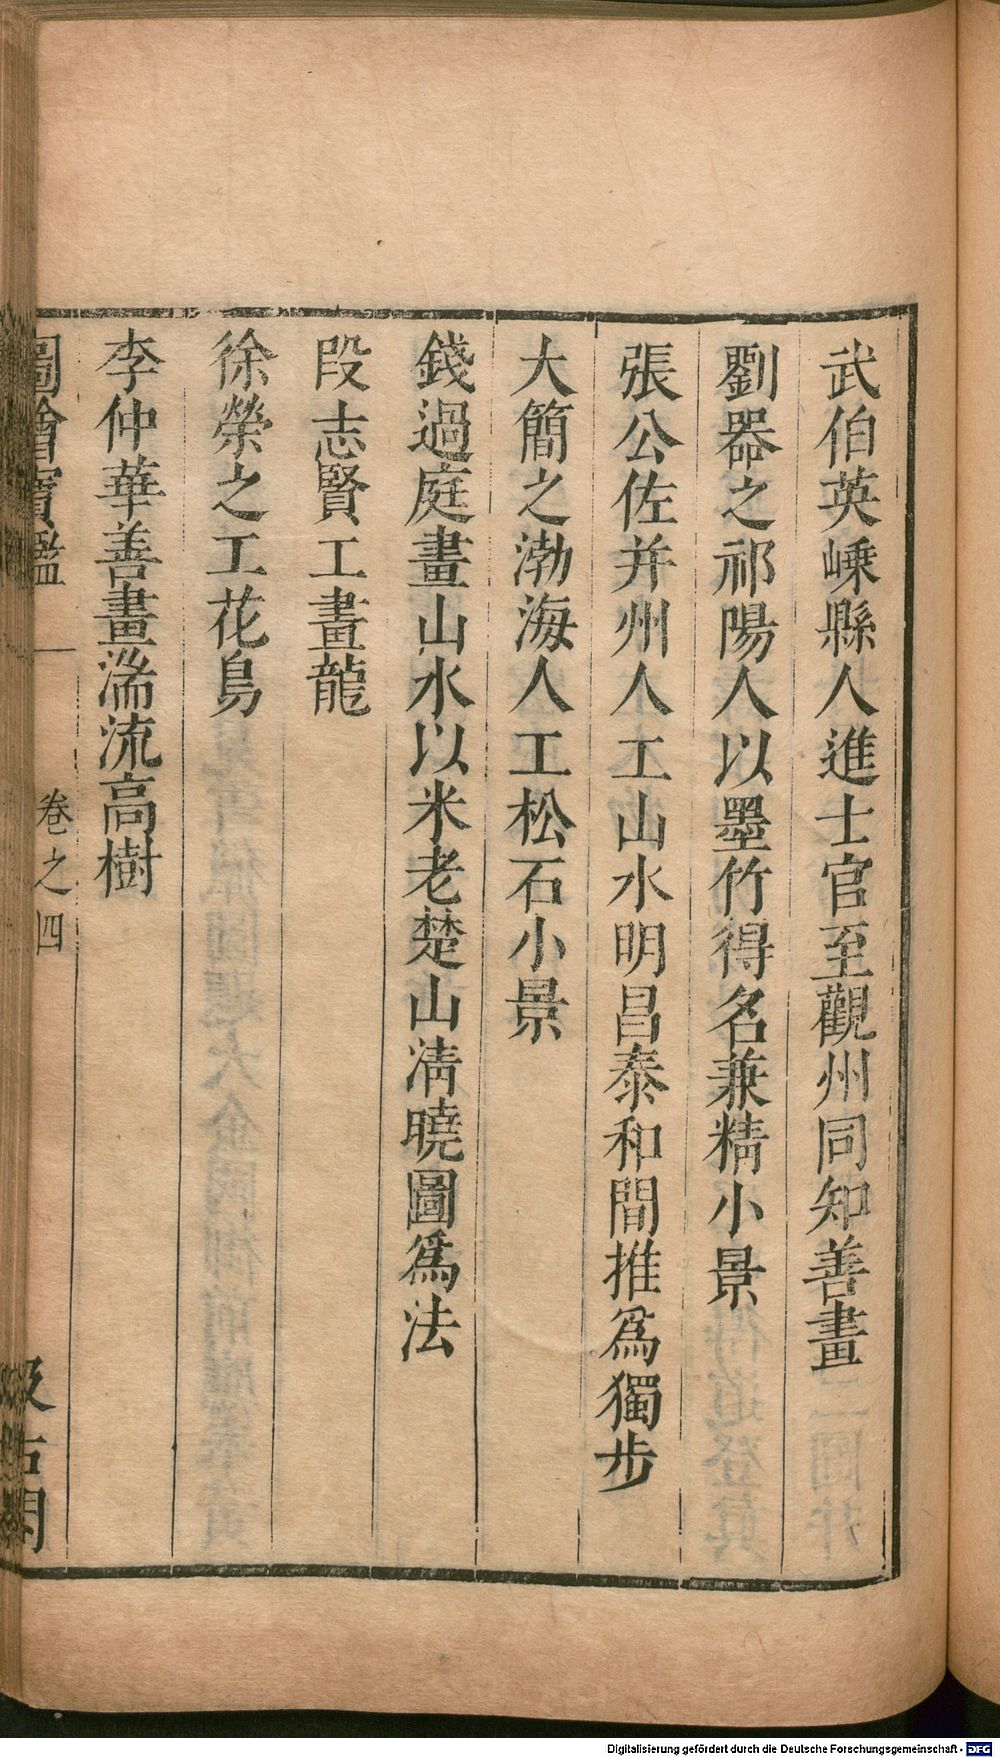 武伯英嵊縣人進士官至觀州同知善畫
劉器之祁陽人以墨竹得名兼精小景
張公佐并州人工山水明昌泰和間推爲獨步
大簡之渤海人工松石小景
錢過庭畫山水以米老楚山清曉圖爲法
段志賢工畫龍
徐榮之工花鳥
李仲華善畫湍流高樹
圖繪寶鑑 卷之四 汲古閣
Digitalisierung gefördert durch die Deutsche Forschungsgemeinschaft - DFG